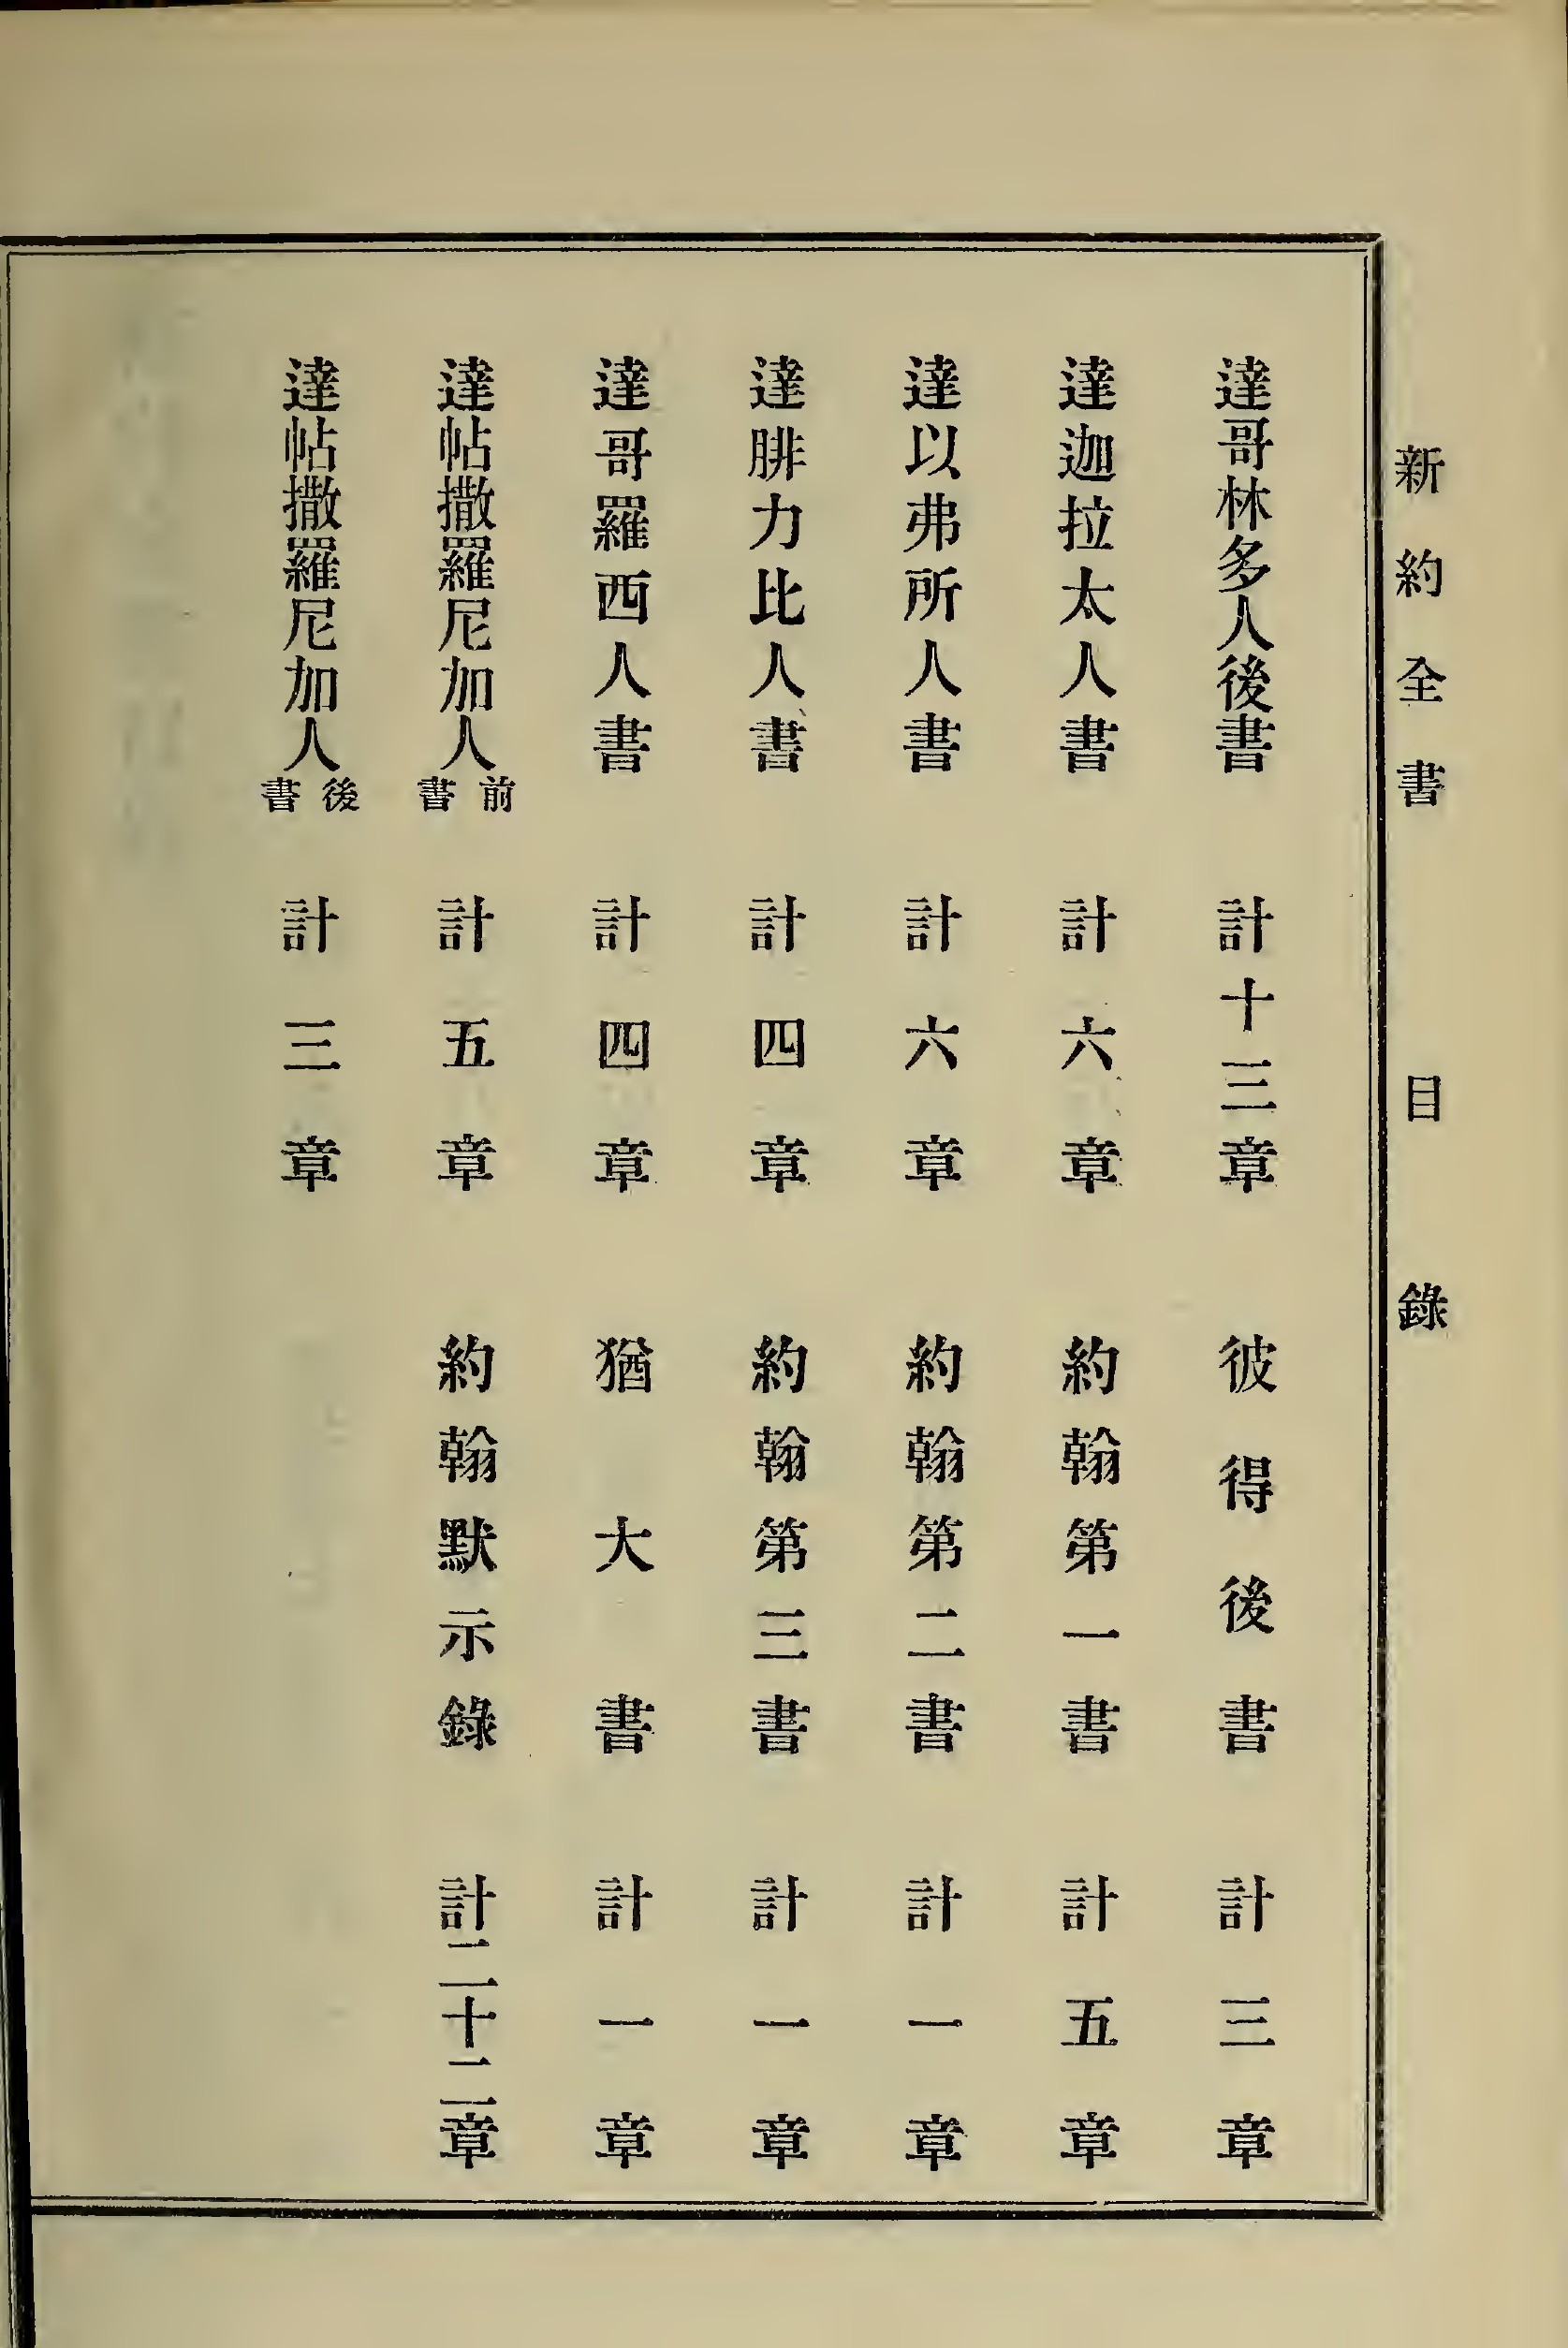 新約全書 目錄
達哥林多人後書 計十三章
達迦拉太人書 計六章
達以弗所人書 計六章
達腓力比人書 計四章
達哥羅西人書 計四章
達帖撒羅尼加人前書 計五章
達帖撒羅尼加人後書 計三章
彼得後書 計三章
約翰第一書 計五章
約翰第二書 計一章
約翰第三書 計一章
猶大書 計一章
約翰默示錄 計二十二章